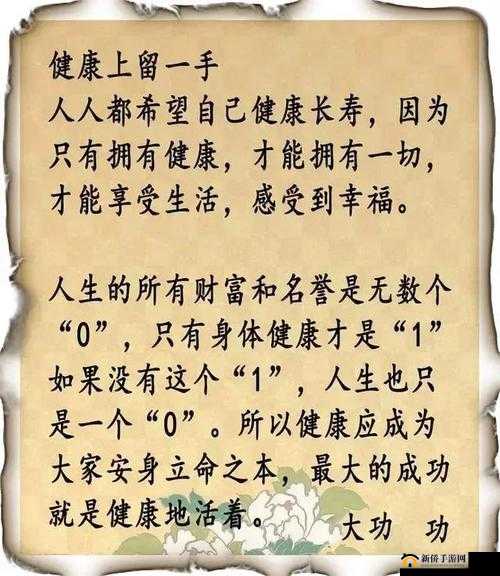 健康上留一手
人人都希望自己健康长寿，因为
只有拥有健康，才能拥有一切，
才能享受生活，感受到幸福。
人生的所有财富和名誉是无数个
“0”，只有身体健康才是“1”
如果没有这个“1”，人生也只
是一个“0”。所以健康应成为
大家安身立命之本，最大的成功
就是健康地活着。
大功 功
新侨手游网